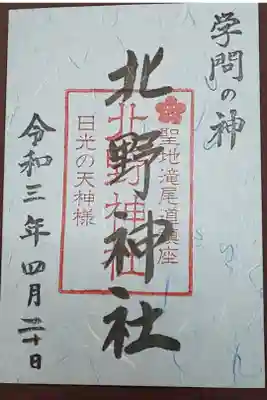 学問の神
聖地滝尾道鎮座
北野神社
北野神社
日光の天神様
令和三年四月二十日